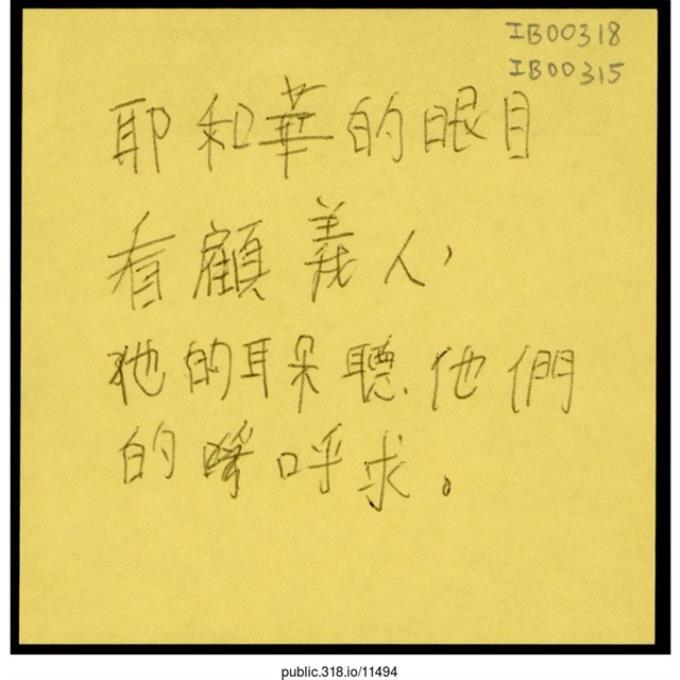 IB00318
IB00315
耶和華的眼目
看顧義人，
祂的耳朵聽他們
的呼求。
public.318.io/11494